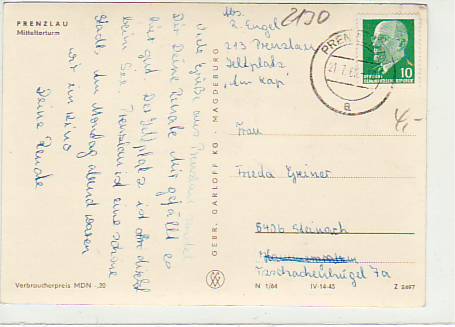 PRENZLAU
Mittelturm
Viele Grüße aus Prenzlau sendet
Dir Deine Renate. Mir gefällt es
hier gut. Der Zeltplatz ist dir direkt
beim See. Prenzlau ist eine schöne
Stadt. Am Montag abend waren
wir im Kino.
Deine Renate
Verbraucherpreis MDN -,20
GEBR. GARLOFF KG · MAGDEBURG
N 1/64 IV-14-45 Z 2497
2130
Abs.
R. Engel
213 Prenzlau
Zeltplatz
„Am Kap"
PRENZLAU
a
DEUTSCHE
DEMOKRATISCHE REPUBLIK
10
4,-
Frau
Frieda Greiner
6406 Steinach
7a